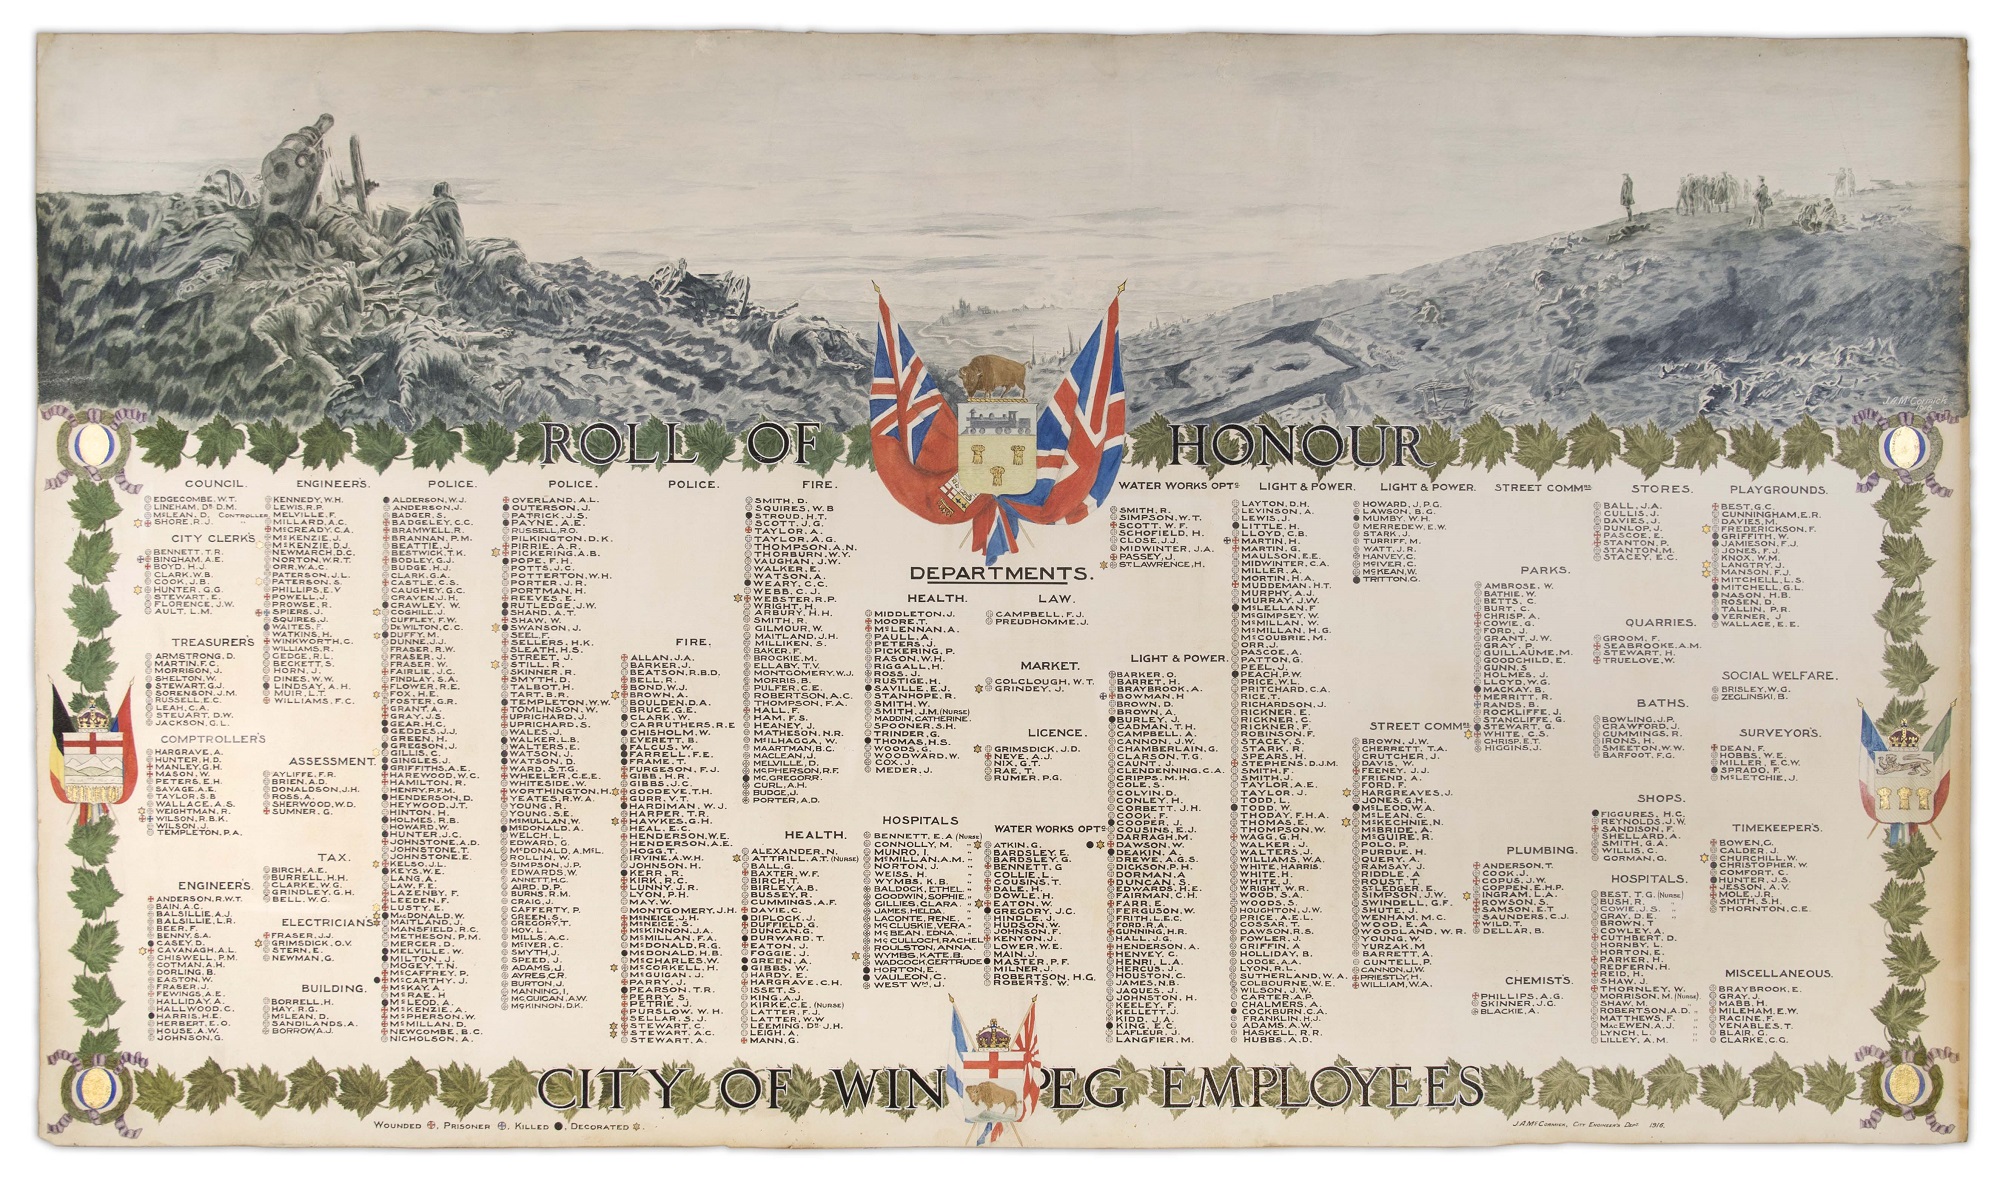 J.A.McCormick
ROLL OF HONOUR
DEPARTMENTS.
COUNCIL.
EDGECOMBE, W.T.
LINEHAM, DR D.M.
McLEAN, D. CONTROLLER
SHORE, R.J. "
CITY CLERK'S
BENNETT, T.R.
BINGHAM, A.E.
BOYD, H.J.
CLARK, W.B.
COOK, J.B.
HUNTER, G.G.
STEWART, E.
FLORENCE, J.W.
AULT, L.M.
TREASURER'S
ARMSTRONG, D.
MARTIN, F.C.
MORRISON, J.
SHELTON, W.
STEWART, G.J.
SORENSON, J.M.
RUSSELL, E.C.
LEAH, C.A.
STEUART, D.W.
JACKSON, G.L.
COMPTROLLER'S
HARGRAVE, A.
HUNTER, H.D.
MANLEY, G.H.
MASON, W.
PETERS, E.H.
SAVAGE, A.E.
TAYLOR, S.B
WALLACE, A.S.
WEIGHTMAN, R.
WILSON, R.B.K.
WILSON, J.
TEMPLETON, P.A.
ENGINEER'S.
ANDERSON, R.W.T.
BAIN, A.C.
BALSILLIE, A.J.
BALSILLIE, L.R.
BEER, F.
BENNY, S.A.
CASEY, D.
CAVANAGH, A.L.
CHISWELL, P.M.
COTMAN, A.H.
DORLING, B.
EASTON, W.
FRASER, J.
FEWINGS, A.E.
HALLIDAY, A.
HALLWOOD, C.
HARRIS, H.E.
HERBERT, E.O.
HULSE, A.W.
JOHNSON, G.
ENGINEER'S.
KENNEDY, W.H.
LEWIS, R.P.
MELVILLE, F.
MILLARD, A.C.
McCREADY, C.A.
McKENZIE, J.
McKENZIE, D.J.
NEWMARCH, D.C.
NORTON, W.R.T.
ORR, W.A.C.
PATERSON, J.L.
PATERSON, S.
PHILLIPS, E.V
POWELL, J.
PROWSE, R.
SPIERS, J.
SQUIRES, J.
WAITES, F.
WATKINS, H.
WINKWORTH, C.
WILLIAMS, R.
GEDGE, R.L.
BECKETT, S.
HORN, J.
DINES, W.W.
LINDSAY, A.H.
MUIR, L.T.
WILLIAMS, F.C.
ASSESSMENT.
AYLIFFE, F.R.
BRIEN, A.D.
DONALDSON, J.H.
ROSS, A.
SHERWOOD, W.D.
SUMNER, G.
TAX.
BIRCH, A.E.
BURRELL, H.H.
CLARKE, W.G.
GRINDLEY, G.H.
BELL, W.G.
ELECTRICIANS
FRASER, J.J.
GRIMSDICK, O.V.
STERN, E.
NEWMAN, G.
BUILDING.
BORRELL, H.
HAY, R.G.
McLEAN, D.
SANDILANDS, A.
BORROW, A.J.
POLICE.
ALDERSON, W.J.
ANDERSON, J.
BADGER, S.
BADGELEY, C.C.
BRAMWELL, R.
BRANNAN, P.M.
BEATTIE, J.
BESTWICK, T.K.
BODLEY, G.J.
BUDGE, H.J.
CLARK, G.A.
CASTLE, C.S.
CAUGHEY, G.C.
CRAVEN, J.H.
CRAWLEY, W.
COGHILL, J.
CUFFLEY, F.W.
DE WILTON, C.C.
DUFFY, M.
DUNNE, J.J.
FRASER, R.W.
FRASER, J.
FRASER, W.
FAIRLIE, J.C.
FINDLAY, S.A.
FLOWER, R.E.
FOX, H.E.
FOSTER, G.R.
GRANT, A.
GRAY, J.S.
GEAR, H.C.
GEDDES, J.J.
GREEN, H.
GREGSON, J.
GILLIS, C.
GINGLES, J.
GRIFFITHS, A.E.
HAREWOOD, W.C.
HAMILTON, R.
HENRY, P.F.M.
HENDERSON, D.
HEYWOOD, J.T.
HINTON, H.
HOLMES, R.B.
HOWARD, W.
HUNTER, J.C.
JOHNSTONE, A.D.
JOHNSTONE, T.
JOHNSTONE, E.
KELSO, J.L.
KEYS, W.E.
LANG, A.
LAW, F.E.
LAZENBY, F.
LEEDEN, F.
LUSTY, E.
MacDONALD, W.
MAITLAND, J.
MANSFIELD, R.C.
METHESON, P.M.
MERCER, D.
MELVILLE, W.
MILTON, J.
MOGEY, T.N.
McCAFFREY, P.
McCARTHY, J.
McKAY, A.
McRAE, H
McLEOD, A.
McKENZIE, A.
McPHERSON, W.
McMILLAN, D.
NEWCOMBE, B.C.
NICHOLSON, A.
POLICE.
OVERLAND, A.L.
OUTERSON, J.
PATRICK, J.S.
PAYNE, A.E.
RUSSELL, R.O.
PILKINGTON, D.K.
PIRRIE, A.R.
PICKERING, A.B.
POPE, F.H.
POTTS, J.C.
POTTERTON, W.H.
PORTER, J.R.
PORTMAN, H.
REEVES, E.
RUTLEDGE, J.W.
SHAND, A.T.
SHAW, W.
SWANSON, J.
SEEL, F.
SELLERS, H.K.
SLEATH, H.S.
STREET, J.
STILL, R.
SKINNER, R.
SMYTH, D.
TALBOT, H.
TART, B.R.
TEMPLETON, W.W.
TOMLINSON, W.
UPRICHARD, J.
UPRICHARD, S.
WALES, J.
WALKER, L.B.
WALTERS, E.
WATSON, J.
WATSON, D.
WARD, S.T.G.
WHEELER, C.E.E.
WHITESIDE, W.
WORTHINGTON, H.
YEATES, R.W.A.
YOUNG, R.
YOUNG, S.E.
McMULLAN, W.
McDONALD, A.
WELCH, L.
EDWARD, G.
McDONALD, A.McL.
ROLLIN, W.
SIMPSON, J.P.
EDWARDS, W.
ANNETT, H.C.
AIRD, D.P.
BURNS, R.M.
CRAIG, J.
CAFFERTY, P.
GREEN, S.
GREGORY, T.
HOY, L.
MILLS, A.C.
McIVER, C.
SMYTH, J.
SPEED, J.
ADAMS, J.
AYRES, C.R.
BURTON, J.
MANNING, I.
McGUIGAN, A.W.
McKINNON, D.K.
POLICE.
FIRE.
ALLAN, J.A.
BARKER, J.
BEATSON, R.B.D.
BELL, R.
BOND, W.J.
BROWN, A.
BOULDEN, D.A.
BRUCE, G.E.
CLARK, W.
CARRUTHERS, R.E
CHISHOLM, W.
EVERETT, B.
FALCUS, W.
FARRELL, F.E.
FRAME, T.
FURGESON, F.J.
GIBB, H.R.
GIBBS, J.C.
GOODEVE, T.H.
GURR, V.T.
HARDIMAN, W.J.
HARPER, T.R.
HAWKES, G.H.
HEAL, E.C.
HENDERSON, W.E.
HENDERSON, A.E.
HOGG, T.
IRVINE, A.W.H.
JOHNSON, H.
KERR, R.
KIRK, R.C.
LUNNY, J.R.
LYON, P.H.
MAY, W.
MONTGOMERY, J.H.
McNEICE, J.H.
McNEICE, S.
McKINNON, J.A.
McMILLAN, F.A.
McDONALD, R.G.
McDONALD, H.B.
McCHARLES, W.
McCORKELL, H.
McGUIGAN, J.
PARRY, J.
PEARSON, T.R.
PERRY, S.
PETRIE, J.
PURSLOW, W.H.
SELLAR, S.J.
STEWART, C.
STEWART, A.C.
STEWART, A.
FIRE.
SMITH, D.
SQUIRES, W.B
STROUD, H.T.
SCOTT, J.G.
TAYLOR, A.
TAYLOR, A.G.
THOMPSON, A.N.
THORBURN, W.Y.
VAUGHAN, J.W.
WALKER, E.
WATSON, A.
WEARY, C.C.
WEBB, C.J.
WEBSTER, R.P.
WRIGHT, H.
ARBURY, H.H.
SMITH, R.
GILMOUR, W.
MAITLAND, J.H.
MILLIKEN, S.
BAKER, F.
BROCKIE, M.
ELLABY, T.V.
MONTGOMERY, W.J.
MORRIS, B.
PULFER, C.E.
ROBERTSON, A.C.
THOMPSON, F.A.
HALL, F.
HAM, F.S.
HEANEY, J.
MATHESON, N.R.
McILHAGGA, W.
MAARTMAN, B.C.
MACLEAN, J.
MELVILLE, D.
McPHERSON, R.F.
McGREGORR.
CURL, A.H.
BUDGE, J.
PORTER, A.D.
HEALTH.
ALEXANDER, N.
ATTRILL, A.T. (NURSE)
BALL, G.
BAXTER, W.F.
BIRCH, T.
BIRLEY, A.B.
BUSSEY, R.
CUMMINGS, A.F.
DAVIE, C.
DIPLOCK, J.
DUFFIELD, G.
DUNCAN, G.
DURWARD, T.
EATON, J.
FOGGIE, J.
GREEN, A.
GIBBS, W.
HARDY, E.
HARGRAVE, C.H.
ISSET, S.
KING, A.J.
KIRKE, C.E. (NURSE)
LATTER, F.J.
LATTER, W.W
LEEMING, DR J.H.
LEIGH, A.
MANN, G.
HEALTH.
MIDDLETON, J.
MOORE, T.
McLENNAN, A.
PAULL, A.
PETERS, J.
PICKERING, P.
RASON, W.H.
RIGGALL, H.
ROSS, J.
RUSTIGE, H.
SAVILLE, E.J.
STANHOPE, R.
SMITH, W.
SMITH, J.M. (NURSE)
MADDIN, CATHERINE.
SPOONER, S.H.
TRINDER, G.
THOMAS, H.S.
WOODS, G.
WOODWARD, W.
COX, J.
MEDER, J.
HOSPITALS
BENNETT, E.A (NURSE)
CONNOLLY, M. "
MUNRO, I. "
McMILLAN, A.M. "
NORTON, J. "
WEISS, H. "
WYMBS, K.B. "
BALDOCK, ETHEL "
GOODWIN, SOPHIE "
GILLIES, CLARA. "
JAMES, HELDA. "
LACONTE, RENE. "
McCLUSKIE, VERA "
McBEAN, EDNA. "
McCULLOCH, RACHEL
ROULSTON, ANNA.
WYMBS, KATE B.
WADGOCK, GERTRUDE
HORTON, E.
VAULEON, C.
WEST WM. J.
LAW.
CAMPBELL, F.J.
PREUDHOMME, J.
MARKET.
COLCLOUGH, W.T.
GRINDEY, J.
LICENCE.
GRIMSDICK, J.D.
NEVE, A.J.
NIX, G.T.
RAE, T.
RUMER, P.G.
WATER WORKS OPTG
ATKIN, G.
BARDSLEY, E.
BARDSLEY, G.
BENNETT, G
COLLIE, L.
COUSINS, T.
DALE, H.
DOWLE, H.
EATON, W.
GREGORY, J.C.
HINDLE, J.
HUDSON, W.
JOHNSON, F.
KENYON, J.
LOWER, W.E.
MAIN, J.
MASTER, P.F.
MILNER, J.
ROBERTSON, H.G.
ROBERTS, W.
WATER WORKS OPTG
SMITH, R.
SIMPSON, W.T.
SCOTT, W.F.
SCHOFIELD, H.
CLOSE, J.J.
MIDWINTER, J.A.
PASSEY, J.
ST LAWRENCE, H.
LIGHT & POWER.
BARKER, O.
BARRET, H.
BRAYBROOK, A.
BOWMAN, H
BROWN, D.
BROWN, A.
BURLEY, J.
CADMAN, T.H.
CAMPBELL, A.
CANNON, J.W.
CHAMBERLAIN, G.
CLARSON, T.G.
CAUNT, J.
CLENDENNING, C.A.
CRIPPS, M.H.
COLE, S.
COLVIN, D.
CONLEY, H.
CORBETT, J.H.
COOK, F.
COOPER, J.
COUSINS, E.J.
DARRAGH, M.
DAWSON, W.
DEAKIN, A.
DREWE, A.G.S.
DICKSON, P.H.
DORMAN, A
DUNCAN, S.
EDWARDS, H.E.
FAIRMAN, C.H.
FARR, E.
FERGUSON, W.
FRITH, L.E.
FORD, R.A.
GUNNING, H.R.
HALL, J.G.
HENDERSON, A.
HENVEY, C.
HENRI, L.A.
HERCUS, J.
HOUSTON, C.
JAMES, N.B.
JAQUES, J.
JOHNSTON, H.
KEELEY, F.
KELLETT, J.
KIDD, J.A.
KING, E.C.
LAFLEUR, J.
LANGFIER, M.
LIGHT & POWER.
LAYTON, D.H.
LEVINSON, A.
LEWIS, J.
LITTLE, H.
LLOYD, C.B.
MARTIN, H.
MARTIN, G.
MAULSON, E.E.
MIDWINTER, C.A.
MILLER, A.
MORTIN, H.A.
MUDDEMAN, H.T.
MURPHY, A.J.
MURRAY, J.W.
McLELLAN, F
McGIMPSEY, W.
McMILLAN, W.
McMILLAN, H.G.
McCOUBRIE, M.
ORR, J.
PASCOE, A.
PATTON, G.
PEEL, J.
PEACH, P.W.
PRICE, W.L.
PRITCHARD, C.A.
RICE, T.
RICHARDSON, J.
RICKNER, E.
RICKNER, C.
RICKNER, F.
ROBINSON, F.
STACEY, S.
STARK, R.
SPEARS, H.
STEPHENS, D.J.M.
SMITH, F.
SMITH, J.
TAYLOR, A.E.
TAYLOR, J.
TODD, L.
TODD, W.
THODAY, F.H.A.
THOMAS, E.
THOMPSON, W.
WAGG, G.H.
WALKER, J.
WALTERS, J.
WILLIAMS, W.A.
WHITE, HARRIS
WHITE, H.
WHITE, J.
WRIGHT, W.R.
WOOD, S.A.
WOODS, S.
HOUGHTON, J.W.
PRICE, A.E.L.
COSSAR, T.
DAWSON, R.S.
FOWLER, J.
GRIFFIN, A
HOLLIDAY, B.
LODGE, A.A.
LYON, R.L.
SUTHERLAND, W.A.
COLBOURNE, W.E.
WILSON, J.W.
CARTER, A.P.
CHALMERS, A.
COCKBURN, C.A.
FRANKLIN, H.J.
ADAMS, A.W.
HASKELL, R.R.
HUBBS, A.D.
LIGHT & POWER.
HOWARD, J.P.G.
LAWSON, B.G.
MUMBY, W.H.
MERREDEW, E.W.
STARK, J.
TURRIFF, M.
WATT, J.R.
HANVEY, C.
McIVER, C.
McKEAN, W.
TRITTON, G.
STREET COMMRS
BROWN, J.W.
CHERRETT, T.A.
CRUTCHER, J.
DAVIS, W.
FEENEY, J.J.
FRIEND, A.
FORD, F.
HARGREAVES, J.
JONES, G.H.
McLEOD, W.A.
McLEAN, C.
McKECHNIE, N.
McBRIDE, A.
McGUIRE, R.
POLO, P.
PURDUE, H.
QUERY, A.
RAMSAY, J.
RIDDLE, A.
ROUST, T.
STLEDGER, E.
SIMPSON, J.W.
SWINDELL, G.F.
SHUTE, J.
WENHAM, M.C.
WOOD, E.A.
WOODLAND, W.R.
YOUNG, W.
YURZAK, M
BARRETT, A.
GUNTELL, P.
CANNON, J.W.
PRIESTLY, H.
WILLIAM, W.A.
STREET COMMRS
PARKS.
AMBROSE, W.
BATHIE, W.
BETTS, C.
BURT, C.
CHRISP, A.
COWIE, G.
FORD, J.
GRANT, J.W.
GRAY, P.
GUILLAUME, M.
GOODCHILD, E.
GUNN, S.
HOLMES, J.
LLOYD, W.G.
MACKAY, B.
MERRITT, R.
RANDS, B.
ROCKLIFFE, J.
STANCLIFFE, G.
STEWART, G.
WHITE, C.S.
CHRISP, E.T.
HIGGINS, J.
PLUMBING.
ANDERSON, T.
COOK, J.
COPUS, J.W.
COPPEN, E.H.P.
INGRAM, L.A.
ROWSON, S.
SAMSON, E.T.
SAUNDERS, C.J.
WILTON, S.
DELLAR, B.
CHEMISTS.
PHILLIPS, A.G.
SKINNER, J.G.
BLACKIE, A.
STORES.
BALL, J.A.
CULLIS, J.
DAVIES, J.
DUNLOP, J.
PASCOE, E.
STANTON, P.
STANTON, M.
STACEY, E.C.
QUARRIES.
GROOM, F.
SEABROOKE, A.M.
STEWART, H.
TRUELOVE, W.
BATHS.
BOWLING, J.P.
CRAWFORD, J.
CUMMINGS, R.
IRONS, H.
SMEETON, W.W.
BARFOOT, F.G.
SHOPS.
FIGGURES, H.C.
REYNOLDS, J.W.
SANDISON, F.
SHELLARD, A.
SMITH, G.A.
WILLIS, C.
GORMAN, G.
HOSPITALS.
BEST, T.G. (NURSE)
BUSH, R. "
COWIE, J.S. "
GRAY, D.E.
BROWN, T.
COWLEY, A.
CUTHBERT, D.
HORNBY, L.
HORTON, E.
PARKER, H.
REDFERN, H.
REID, H.
SHAW, J.
THORNLEY, W.
MORRISON, M. (NURSE)
SHAW, M. "
ROBERTSON, A.D. "
MATTHEWS, F. "
MacEWEN, A.J. "
LYNCH, L. "
LILLEY, A.M. "
PLAYGROUNDS.
BEST, G.C.
CUNNINGHAM, E.R.
DAVIES, M.
FREDERICKSON, F.
GRIFFITH, W.
JAMIESON, F.J.
JONES, F.J.
KNOX, W.M.
LANGTRY, J.
MANSON, F.J.
MITCHELL, L.S.
MITCHELL, G.L.
NASON, H.B.
ROSEN, D.
TALLIN, P.R.
VERNER, J.
WALLACE, E.E.
SOCIAL WELFARE.
BRISLEY, W.G.
ZEGLINSKI, B.
SURVEYOR'S.
DEAN, F.
HOBBS, W.
MILLER, E.C.W.
SPRADO, F.
McLETCHIE, J.
TIMEKEEPER'S.
BOWEN, G.
CALDER, J.
CHURCHILL, W.
CHRISTOPHER, W.
COMFORT, C.
HUNTER, J.S.
JESSON, A.V.
MOLE, J.R.
SMITH, S.H.
THORNTON, C.E.
MISCELLANEOUS.
BRAYBROOK, E.
GRAY, J.
MABB, H.
MILEHAM, E.W.
RACINE, F.
VENABLES, T.
BLAIR, G.
CLARKE, C.G.
CITY OF WINNIPEG EMPLOYEES
WOUNDED, PRISONER, KILLED, DECORATED.
J.A.McCORMICK, CITY ENGINEER'S DEPT 1916.